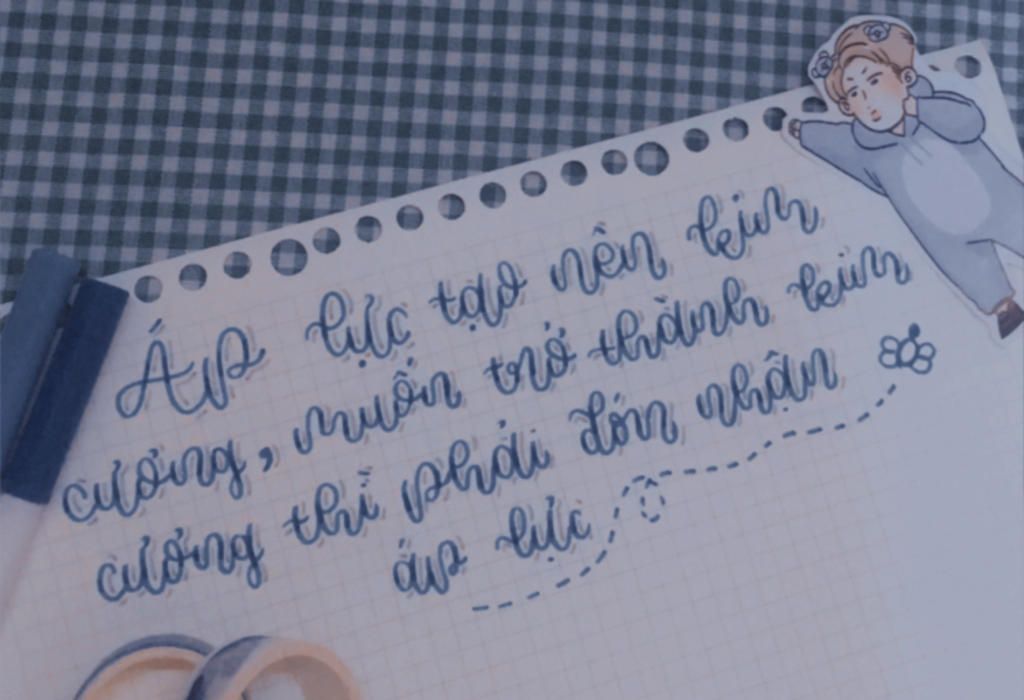 Áp lực tạo nên kim
cương, muốn trở thành kim
cương thì phải đón nhận
áp lực